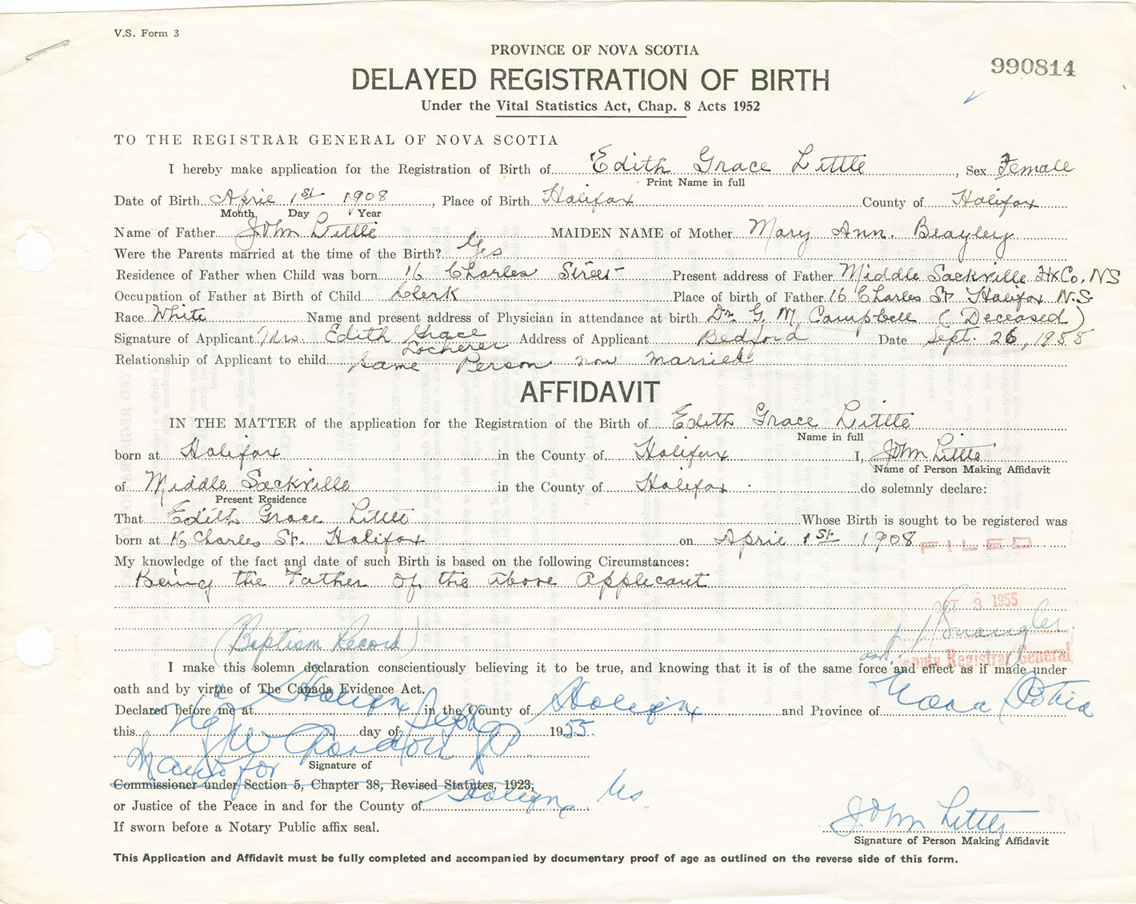 V.S. Form 3
PROVINCE OF NOVA SCOTIA
990814
DELAYED REGISTRATION OF BIRTH
Under the Vital Statistics Act, Chap. 8 Acts 1952
TO THE REGISTRAR GENERAL OF NOVA SCOTIA
I hereby make application for the Registration of Birth of Edith Grace Little, Sex Female
Print Name in full
Date of Birth April 1st 1908, Place of Birth Halifax County of Halifax
Month Day Year
Name of Father John Little MAIDEN NAME of Mother Mary Ann. Beayley
Were the Parents married at the time of the Birth? Yes
Residence of Father when Child was born 16 Charles Street Present address of Father Middle Sackville Hx Co, NS
Occupation of Father at Birth of Child Clerk Place of birth of Father 16 Charles St. Halifax N.S.
Race White Name and present address of Physician in attendance at birth Dr. G. M Campbell (Deceased)
Signature of Applicant Mrs. Edith Grace Locherer Address of Applicant Bedford Date Sept. 26, 1955
Relationship of Applicant to child same Person now married
AFFIDAVIT
IN THE MATTER of the application for the Registration of the Birth of Edith Grace Little
Name in full
born at Halifax in the County of Halifax I, John Little
Name of Person Making Affidavit
of Middle Sackville in the County of Halifax do solemnly declare:
Present Residence
That Edith Grace Little Whose Birth is sought to be registered was
born at 16 Charles St. Halifax on April 1st 1908
FILED
My knowledge of the fact and date of such Birth is based on the following Circumstances:
Being the Father of the above Applicant
OCT 3 1955
(Baptism Record)
Deputy Registrar General
I make this solemn declaration conscientiously believing it to be true, and knowing that it is of the same force and effect as if made under
oath and by virtue of The Canada Evidence Act.
Declared before me at Halifax in the County of Halifax and Province of Nova Scotia
this day of Sept 1955.
Signature of
Commissioner under Section 5, Chapter 38, Revised Statutes, 1923,
or Justice of the Peace in and for the County of Halifax NS
If sworn before a Notary Public affix seal.
John Little
Signature of Person Making Affidavit
This Application and Affidavit must be fully completed and accompanied by documentary proof of age as outlined on the reverse side of this form.